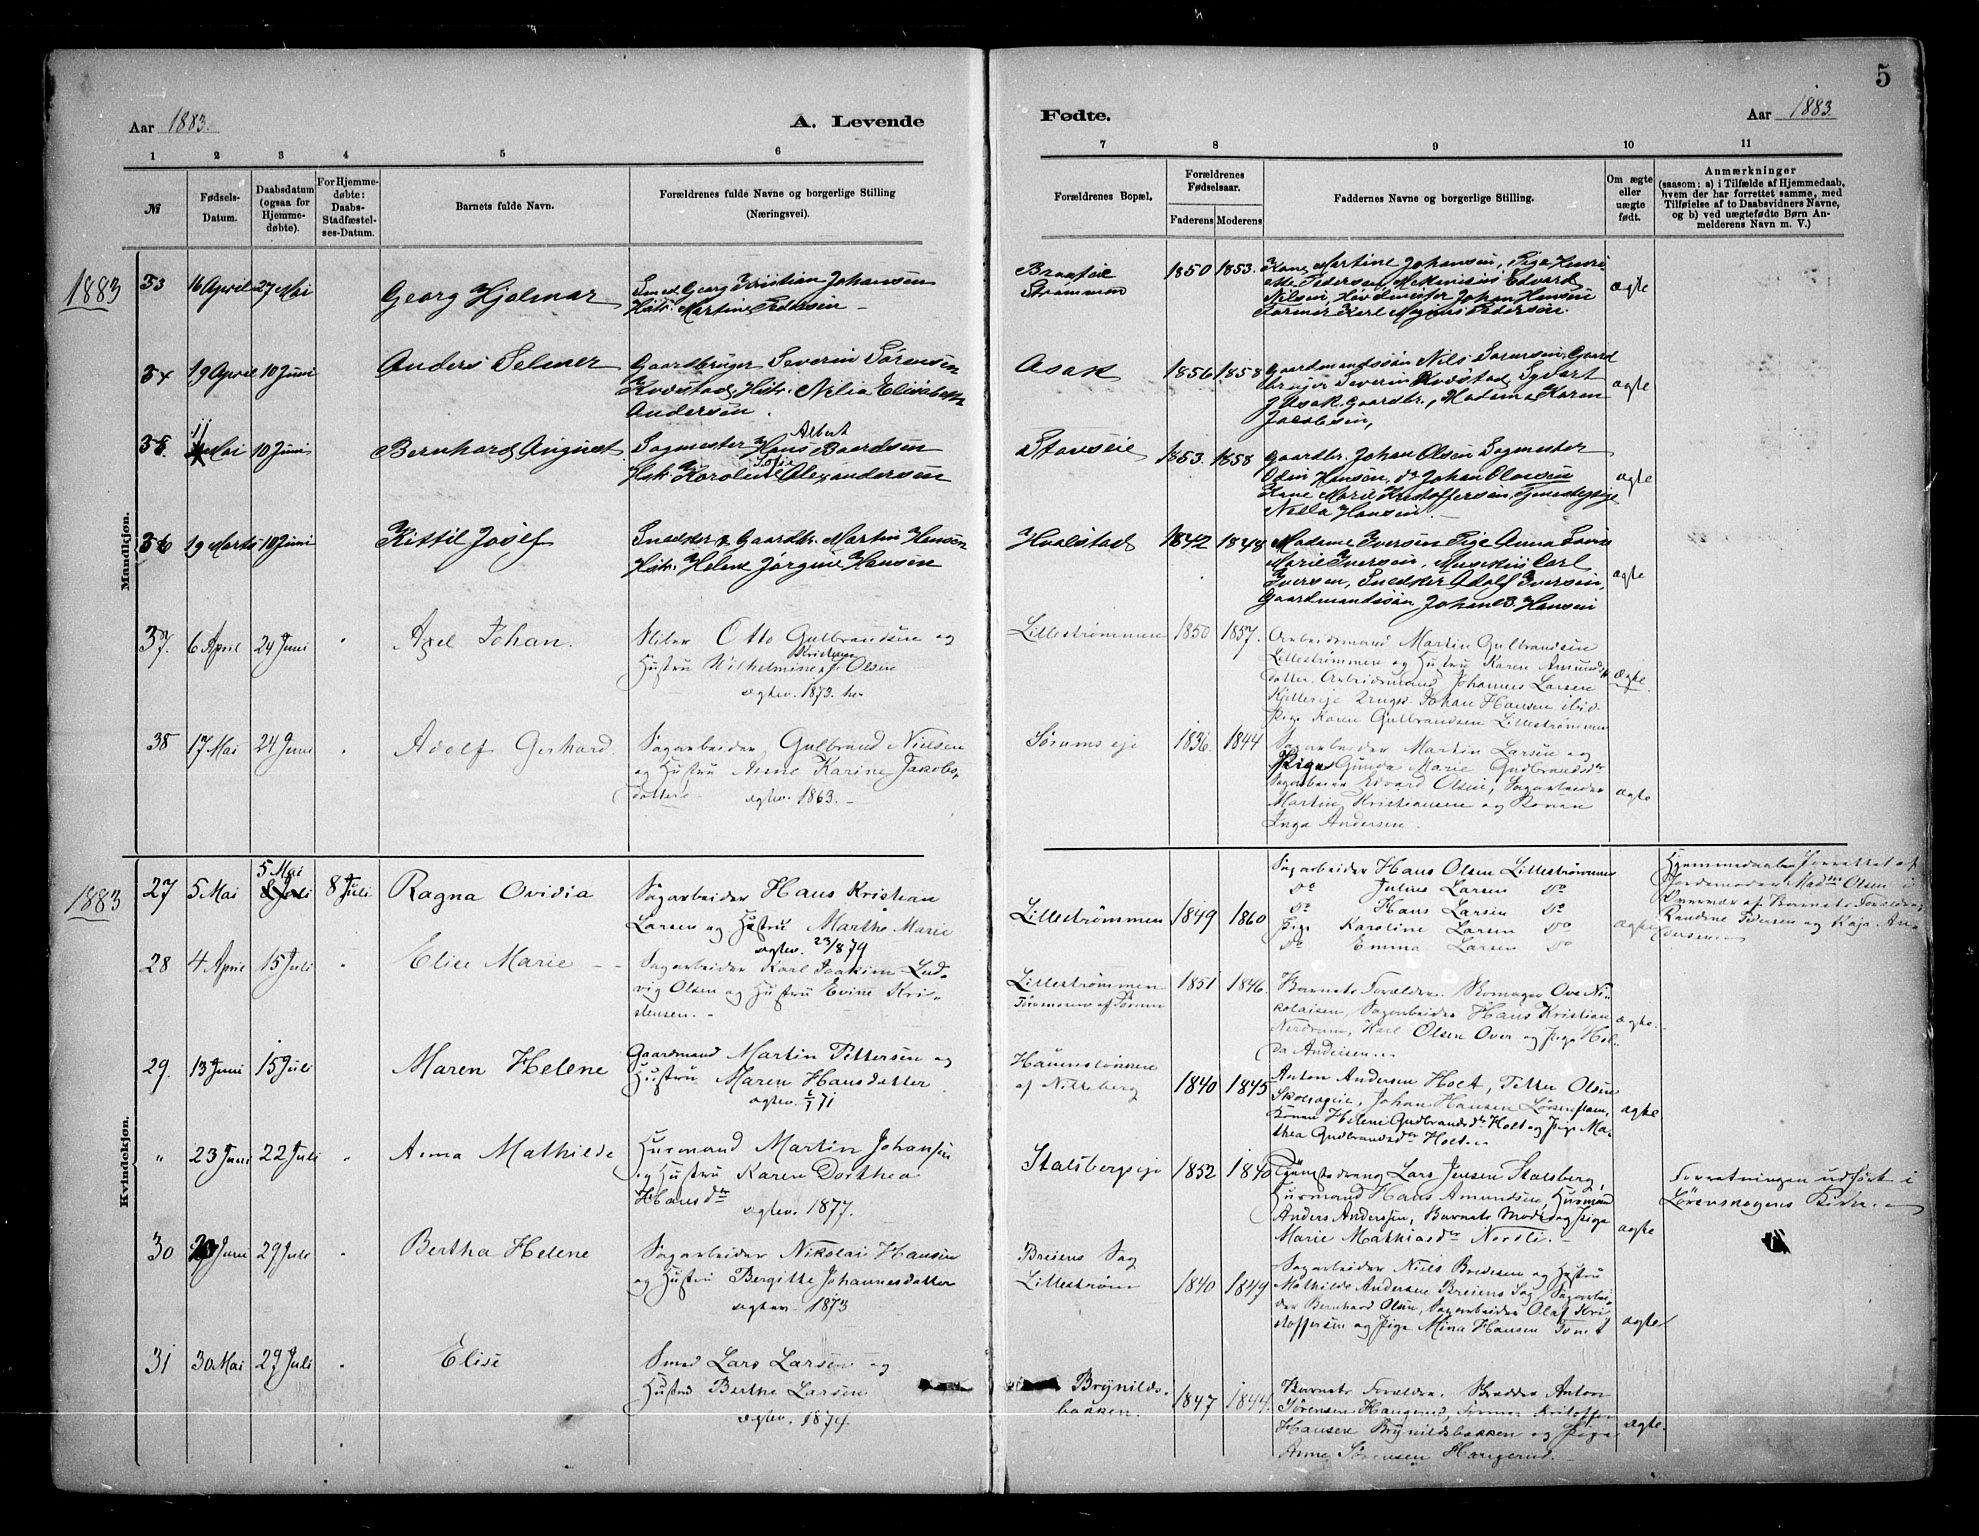 5
Aar 1883.
A. Levende
Fødte.
Aar 1883.
1 2 3 4 5 6 7 8 9 10 11
№
Fødsels-
Datum.
Daabsdatum
(ogsaa for
Hjemme-
døbte).
For Hjemme-
døbte:
Daabs-
Stadfæstel-
ses-Datum.
Barnets fulde Navn.
Forældrenes fulde Navne og borgerlige Stilling
(Næringsvei).
Forældrenes Bopæl.
Forældrenes
Fødselsaar.
Faderens Moderens
Faddernes Navne og borgerlige Stilling.
Om ægte
eller
uægte
født.
Anmærkninger
(saasom: a) i Tilfælde af Hjemmedaab,
hvem der har forrettet samme, med
Tilføielse af to Daabsvidners Navne,
og b) ved uægtefødte Børn An-
melderens Navn m. V.)
Mandkjøn.
1883
33 16 April 27 Mai
Georg Hjalmar
Smed Georg Kristian Johansen
Hstr. Martine
Strømmen
1850 1853.
Kone Martine Johansen, Pige Henri-
ette Pedersen, Edvard
Nilsen, Johan Hansen
Former Karl Magnus Pedersen.
ægte
34 19 April 10 Juni
Anders Selmer
Gaardbruger Severin Sørensen
Hstr. Nilia Elisabeth
Andersen.
Asak
1856 1858
Gaardmandssøn Nils Sørensen, Gaard
bruger Severin Syvert
Asak Gaardbr., Madame Karen
Jacobsen,
ægte
35 11 Mai 10 Juni
Bernhard August
Albert
Sagmester Hans Baardsen
Sofie
Hstr. Karoline Alexandersen
Stavseie
1853. 1858
Gaardbr. Johan Olsen Sagmester
Odin Hansen, do Johan Olausen
Kone Marie Kristoffersen, Tjenestepige
Nella Hansen
ægte
36 19 Marts 10 Juni
Kittil Josef
Snedker & Gaardbr. Martin Hansen
Hstr. Helene Jørgine Hansen
Hvalstad
1842 1848
Madame Iversen Pige Anna Lovise
Marie Iversen, Carl
Iversen, Snedker Adolf Iversen,
Gaardmandssøn Johan B. Hansen
ægte
37. 6 April 24 Juni "
Axel Johan.
Sliber Otto Gulbrandsen og
Kristine
Hustru Wilhelmine Olsen
ægtev. 1873.
Lillestrømmen
1850 1857.
Arbeidsmand Martin Gulbrandsen
Lillestrømmen og Hustru Karen Amunds-
datter, Arbeidsmand Johannes Larsen
Johan Hansen ibid.
Pige Karen Gulbrandsen Lillestrømmen
ægte.
38 17 Mai 24 Juni "
Adolf Gerhard.
Sagarbeider Gulbrand Nielsen
og Hustru Anne Karine Jakobs-
datter. ægtev. 1863.
Sørums eje
1836. 1844
Sagarbeider Martin Larsen og
Pige Gunda Marie Gudbrandsdr
Sagarbeider Edvard Olsen, Sagarbeider
Martin Kristiansen og Konen
Inga Andersen.
ægte
Kvindekjøn.
1883
27 5 Mai 5 Mai 8 Juli
Ragna Ovidia
Sagarbeider Hans Kristian
Larsen og Hustru Marthe Marie
ægtev. 23/879
Lillestrømmen
1849 1860
Sagarbeider Hans Olsen Lillestrømmen
Do Julius Larsen Do
Do Hans Larsen Do
Pige Karoline Larsen Do
Do Emma Larsen Do
ægte
Hjemmedaaben forrettet af
Jordemoder Madm Olsen i
Nærvær af Barnets Forældre,
Randine Pedersen og Kaja An-
dersen.
28 4 April 15 Juli "
Elise Marie
Sagarbeider Karl Joakim Lud-
vig Olsen og Hustru Evine Kri-
stensen.
Lillestrømmen
1851 1846.
Barnets Forældre. Skomager Ove Ni-
kolaisen, Sagarbeider Hans Kristian
Nerdrum, Karl Olsen Over og Pige Hel-
da Andersen.
ægte.
29. 13 Juni 15 Juli
Maren Helene
Gaardmand Martin Pettersen og
Hustru Maren Hansdatter.
ægtev. 71
af Nitteberg
1840 1845
Anton Andersen Holt, Petter Olsen
Johan Hansen
Konen Helene Gudbrandsdr Holt og Pige Ma-
thea Gudbrandsdr Holt.
ægte
" 23 Juni 22 Juli "
Anna Mathilde
Husmand Martin Johansen
og Hustru Karen Dorthea
Hansdr ægtev. 1877.
Stalsbergseje
1852 1840
Tjenestedreng Lars Jensen Stalsberg,
Husmand Hans Amundsen, Husmand
Anders Anderssen, Barnets Moder og Pige
Marie Mathiasdr Nordli.
ægte
Forretningen udført i
Lørenskogens Kirke.
30 Juni 29 Juli "
Bertha Helene
Sagarbeider Nikolai Hansen
og Hustru Bergitte Johannesdatter
ægtev. 1873
Breiens Sag
Lillestrøm
1840 1849
Sagarbeider Niels Bredesen og Hustru
Mathilde Andersen Breiens Sag, Sagarbei-
der Bernhard Olsen, Sagarbeider Olaf Kri-
stoffersen og Pige Mina Hansen
ægte
31 30 Mai 29 Juli "
Elise
Smed Lars Larsen og
Hustru Berthe Larsen
ægtev. 1874.
Brynilds-
bakken.
1847 1844.
Barnets Forældre. Anton
Sørensen Haugerud, Former Kristoffer
Hansen Brynildsbakken og Pige
Anne Sørensen Haugerud.
ægte.